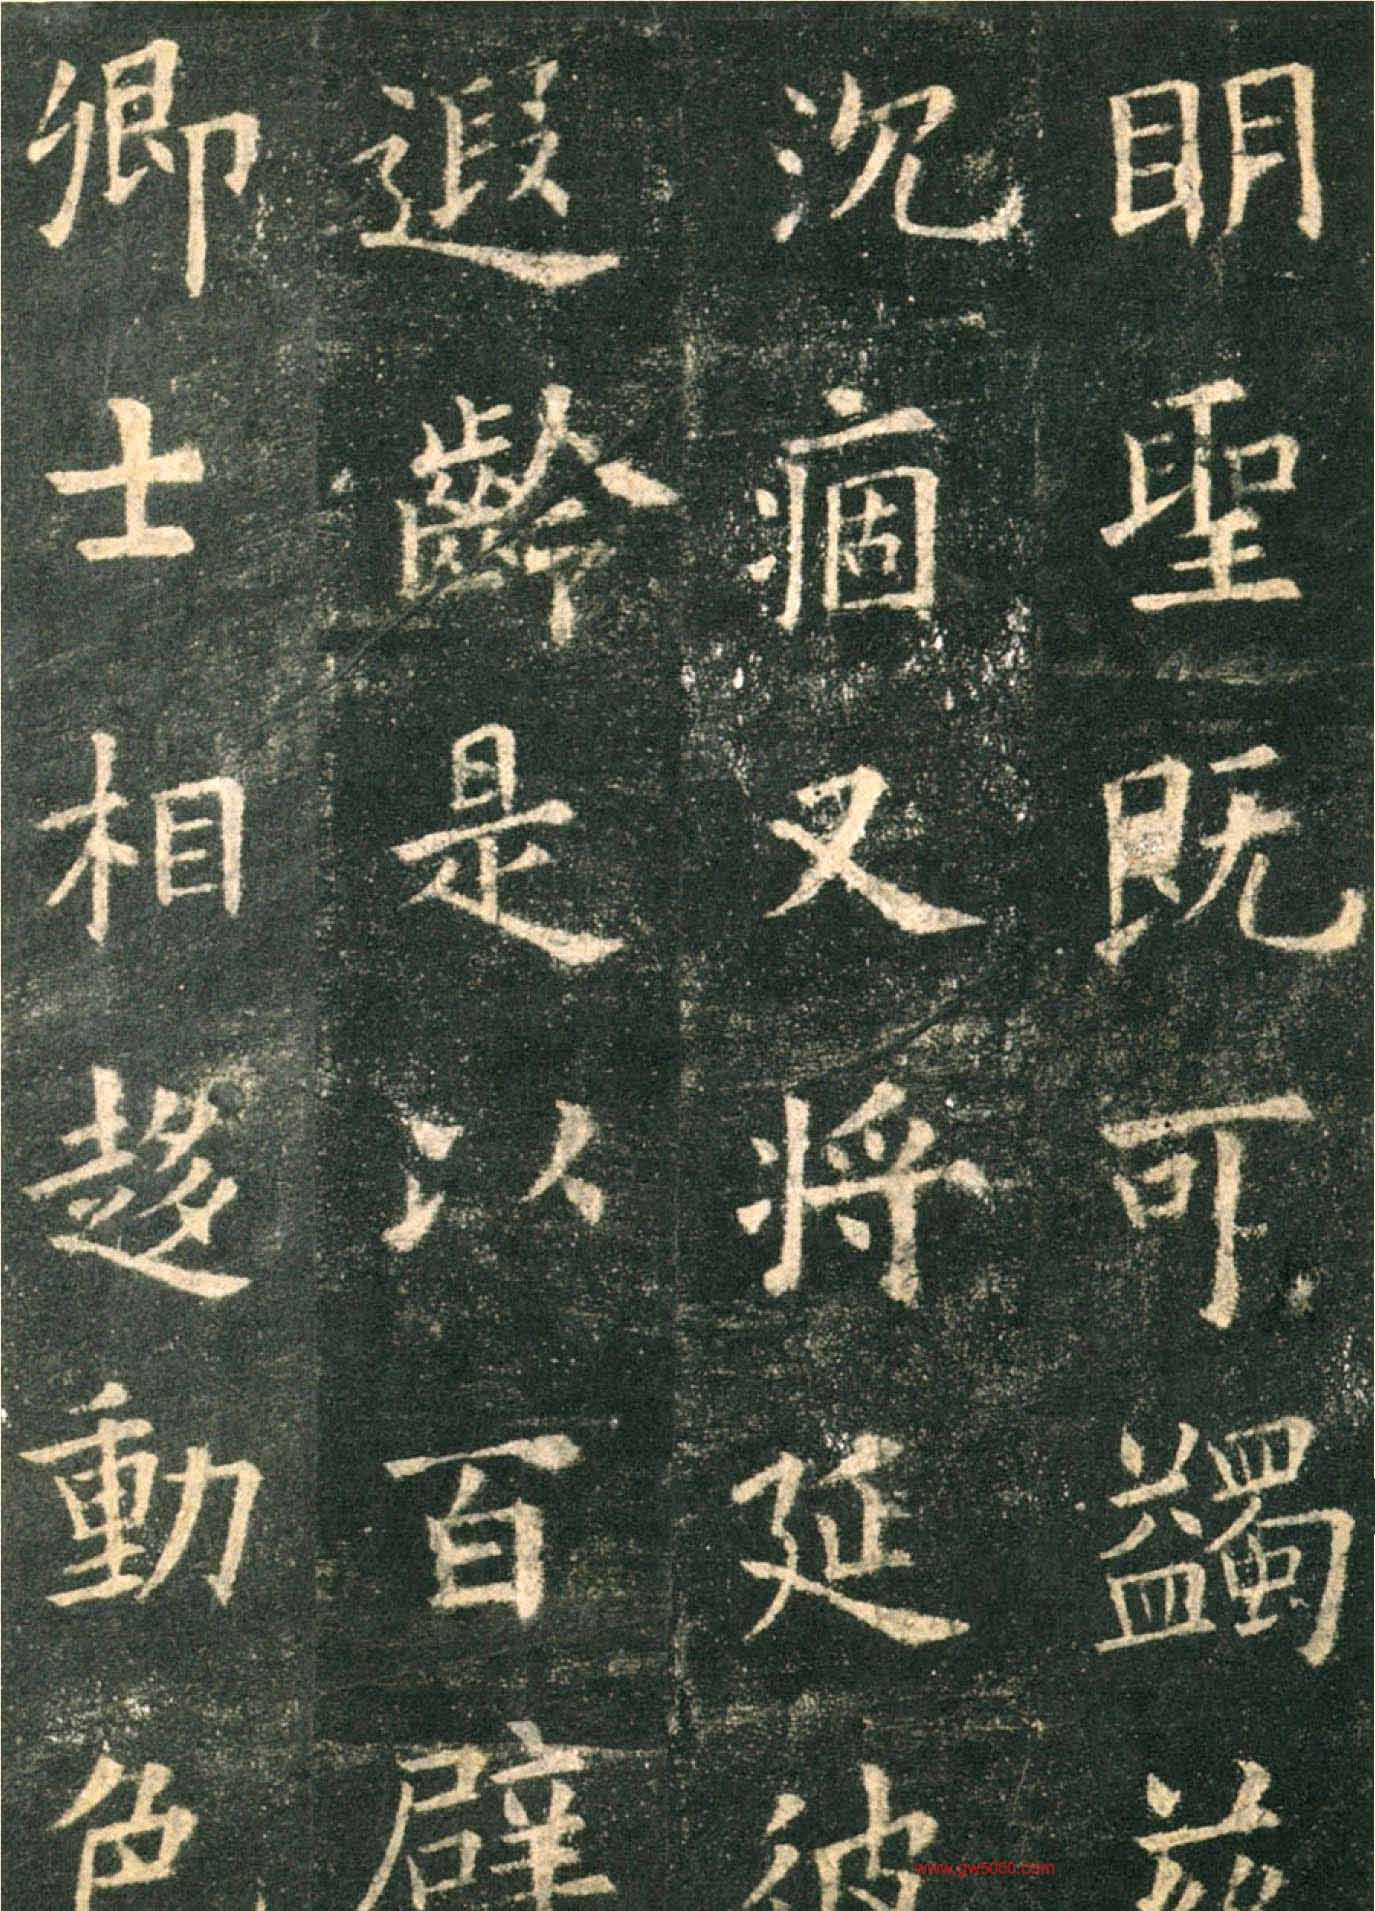 明聖既可蠲茲
沉痼又将延彼
遐齡是以百辟
卿士相趍動色
www.gw5060.com